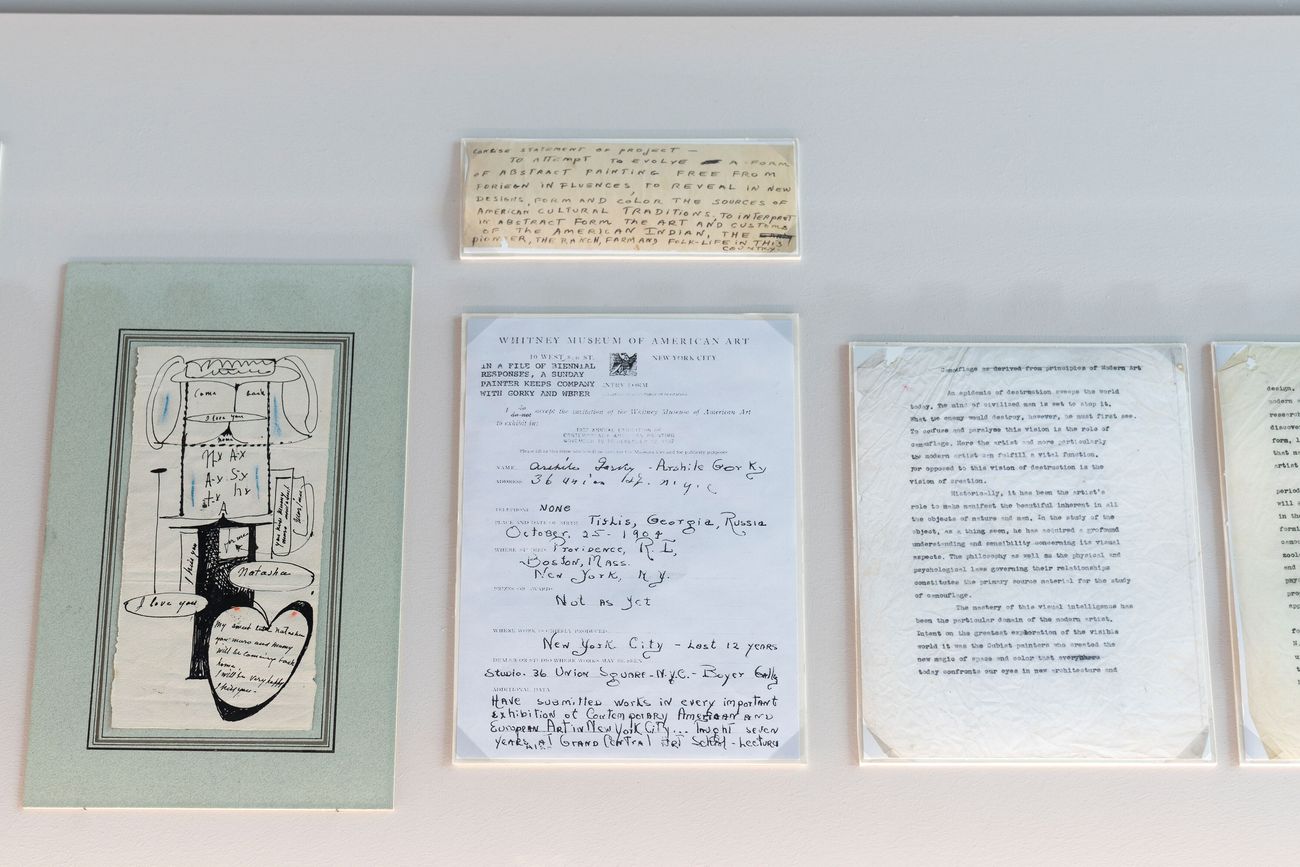 Come back
I love you
home
N-x A-x
A-x S-x
t-x h-x
you miss
I kiss you
Natasha
I love you
My sweet Natasha
you moro and many
will be coming back
home.
I will be very happy
I kiss you-
STATEMENT OF PROJECT —
TO ATTEMPT TO EVOLVE A FORM
OF ABSTRACT PAINTING FREE FROM
FORIEGN INFLUENCES, TO REVEAL IN NEW
DESIGNS, FORM AND COLOR THE SOURCES OF
AMERICAN CULTURAL TRADITIONS, TO INTERPRET
IN ABSTRACT FORM THE ART AND CUSTOMS
OF THE AMERICAN INDIAN, THE
PIONEER, THE RANCH, FARM AND FOLK-LIFE IN THIS
COUNTRY
WHITNEY MUSEUM OF AMERICAN ART
10 WEST 8th ST. NEW YORK CITY
IN A FILE OF BIENNIAL
RESPONSES, A SUNDAY
PAINTER KEEPS COMPANY
WITH GORKY AND WEBER
ENTRY FORM
I do
do not accept the invitation of the Whitney Museum of American Art
to exhibit in:
NAME Archile Gorky - Archile Gorky
ADDRESS 36 Union Sq. N.Y.C
TELEPHONE NONE
PLACE AND DATE OF BIRTH Tiflis, Georgia, Russia
October, 25 - 1904
WHERE STUDIED Providence, R.I,
Boston, Mass.
New York, N.Y.
PRIZES OR AWARDS
Not as yet
WHERE WORK IS CHIEFLY PRODUCED
New York City - Last 12 years
DEALER OR STUDIO WHERE WORKS MAY BE SEEN
Studio. 36 Union Square - N.Y.C. - Boyer Gally
ADDITIONAL DATA
Have submitted works in every important
exhibition of Contemporary American and
European Art in New York City... Taught seven
years at Grand Central Art School - Lectured
Camouflage as derived from principles of Modern Art
An epidemic of destruction sweeps the world
today. The mind of civilized man is set to stop it.
What the enemy would destroy, however, he must first see.
To confuse and paralyse this vision is the role of
camouflage. Here the artist and more particularly
the modern artist can fulfill a vital function,
for opposed to this vision of destruction is the
vision of creation.
Historically, it has been the artist's
role to make manifest the beautiful inherent in all
the objects of nature and man. In the study of the
object, as a thing seen, he has acquired a profound
understanding and sensibility concerning its visual
aspects. The philosophy as well as the physical and
psychological laws governing their relationships
constitutes the primary source material for the study
of camouflage.
The mastery of this visual intelligence has
been the particular domain of the modern artist.
Intent on the greatest exploration of the visible
world it was the Cubist painters who created the
new magic of space and color that everywhere
today confronts our eyes in new architecture and
design.
modern
research
form, l
that
artist
period
will
in the
form